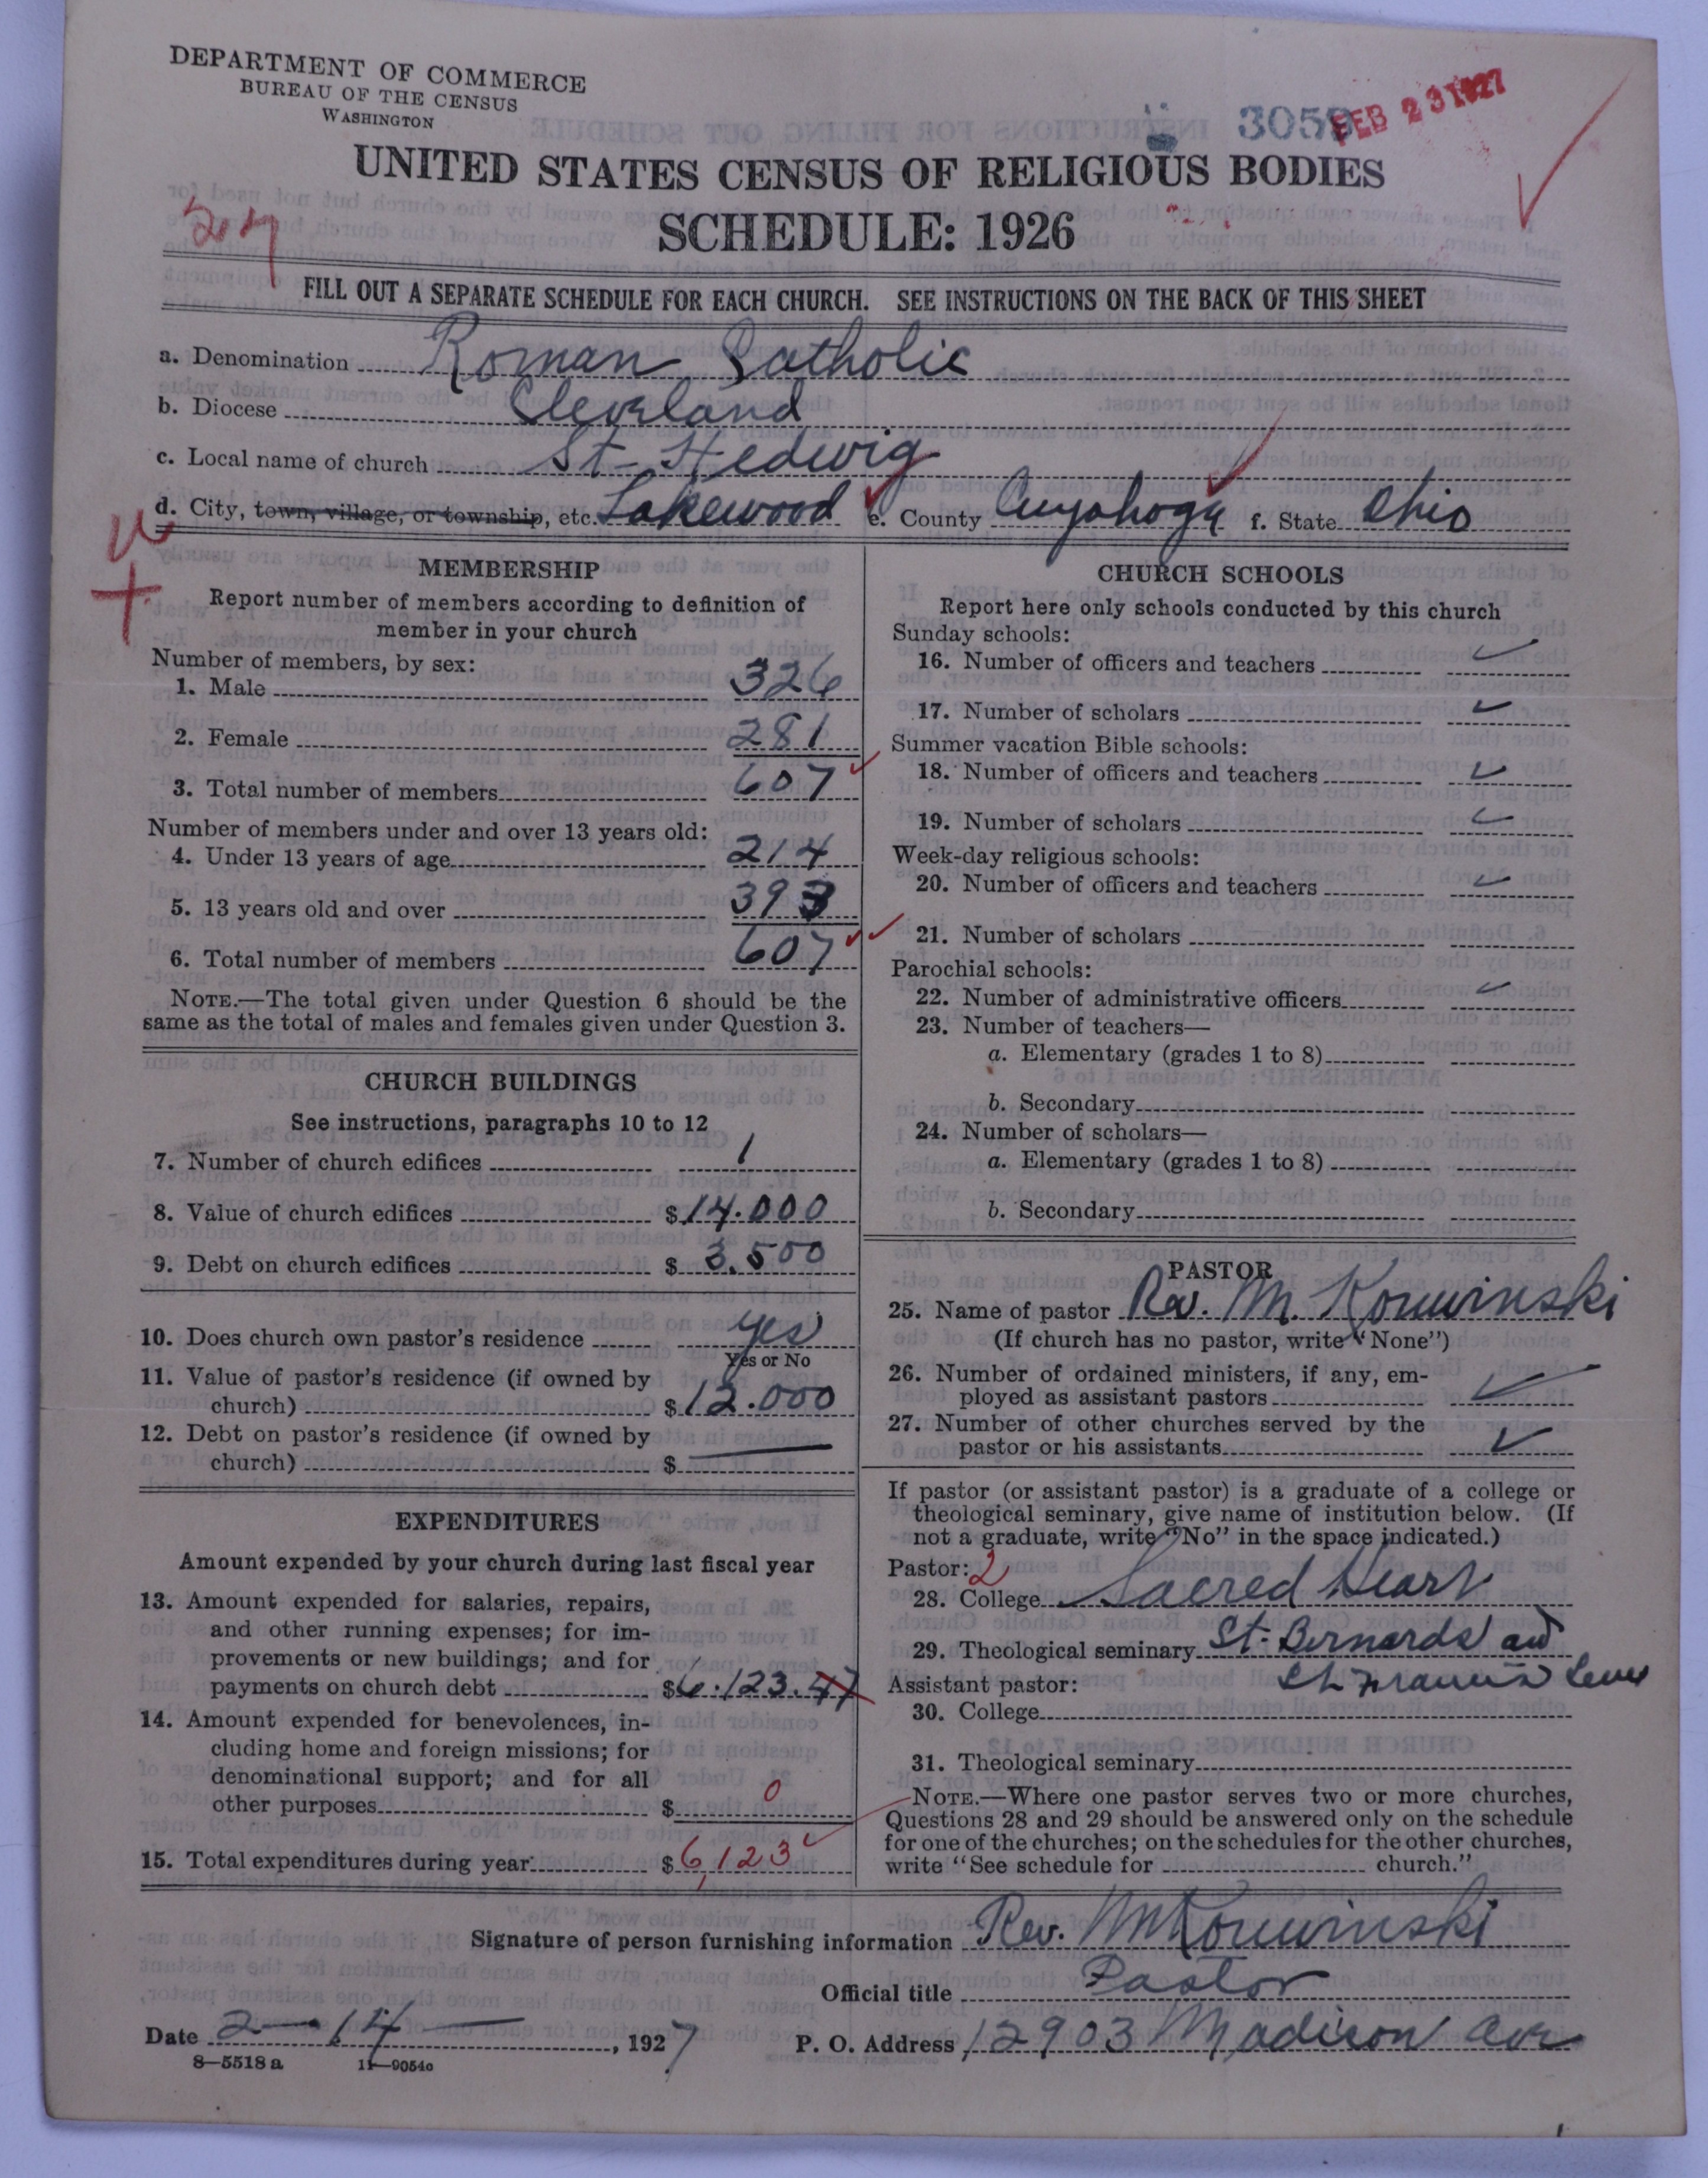 DEPARTMENT OF COMMERCE
BUREAU OF THE CENSUS
WASHINGTON
3059
FEB 23 1927
UNITED STATES CENSUS OF RELIGIOUS BODIES
SCHEDULE: 1926
FILL OUT A SEPARATE SCHEDULE FOR EACH CHURCH. SEE INSTRUCTIONS ON THE BACK OF THIS SHEET
a. Denomination Roman Catholic
b. Diocese Cleveland
c. Local name of church St. Hedwig
d. City, town, village, or township, etc. Lakewood e. County Cuyahoga f. State Ohio
MEMBERSHIP
Report number of members according to definition of
member in your church
Number of members, by sex:
1. Male 326
2. Female 281
3. Total number of members 607
Number of members under and over 13 years old:
4. Under 13 years of age 214
5. 13 years old and over 393
6. Total number of members 607
NOTE.—The total given under Question 6 should be the
same as the total of males and females given under Question 3.
CHURCH BUILDINGS
See instructions, paragraphs 10 to 12
7. Number of church edifices 1
8. Value of church edifices $14.000
9. Debt on church edifices $3.500
10. Does church own pastor's residence yes
Yes or No
11. Value of pastor's residence (if owned by
church) $12.000
12. Debt on pastor's residence (if owned by
church) $ —
EXPENDITURES
Amount expended by your church during last fiscal year
13. Amount expended for salaries, repairs,
and other running expenses; for im-
provements or new buildings; and for
payments on church debt $6.123.47
14. Amount expended for benevolences, in-
cluding home and foreign missions; for
denominational support; and for all
other purposes $ 0
15. Total expenditures during year $6,123
CHURCH SCHOOLS
Report here only schools conducted by this church
Sunday schools:
16. Number of officers and teachers
17. Number of scholars
Summer vacation Bible schools:
18. Number of officers and teachers
19. Number of scholars
Week-day religious schools:
20. Number of officers and teachers
21. Number of scholars
Parochial schools:
22. Number of administrative officers
23. Number of teachers—
a. Elementary (grades 1 to 8)
b. Secondary
24. Number of scholars—
a. Elementary (grades 1 to 8)
b. Secondary
PASTOR
25. Name of pastor Rev. M.
(If church has no pastor, write "None")
26. Number of ordained ministers, if any, em-
ployed as assistant pastors
27. Number of other churches served by the
pastor or his assistants
If pastor (or assistant pastor) is a graduate of a college or
theological seminary, give name of institution below. (If
not a graduate, write "No" in the space indicated.)
Pastor: 2
28. College Sacred Heart
29. Theological seminary St. Bernards and
Assistant pastor: St Francis
30. College
31. Theological seminary
NOTE.—Where one pastor serves two or more churches,
Questions 28 and 29 should be answered only on the schedule
for one of the churches; on the schedules for the other churches,
write "See schedule for church."
Signature of person furnishing information Rev.
Official title Pastor
Date 2—14— , 1927 P. O. Address 12903 Madison Ave
8—5518 a 11—9054o